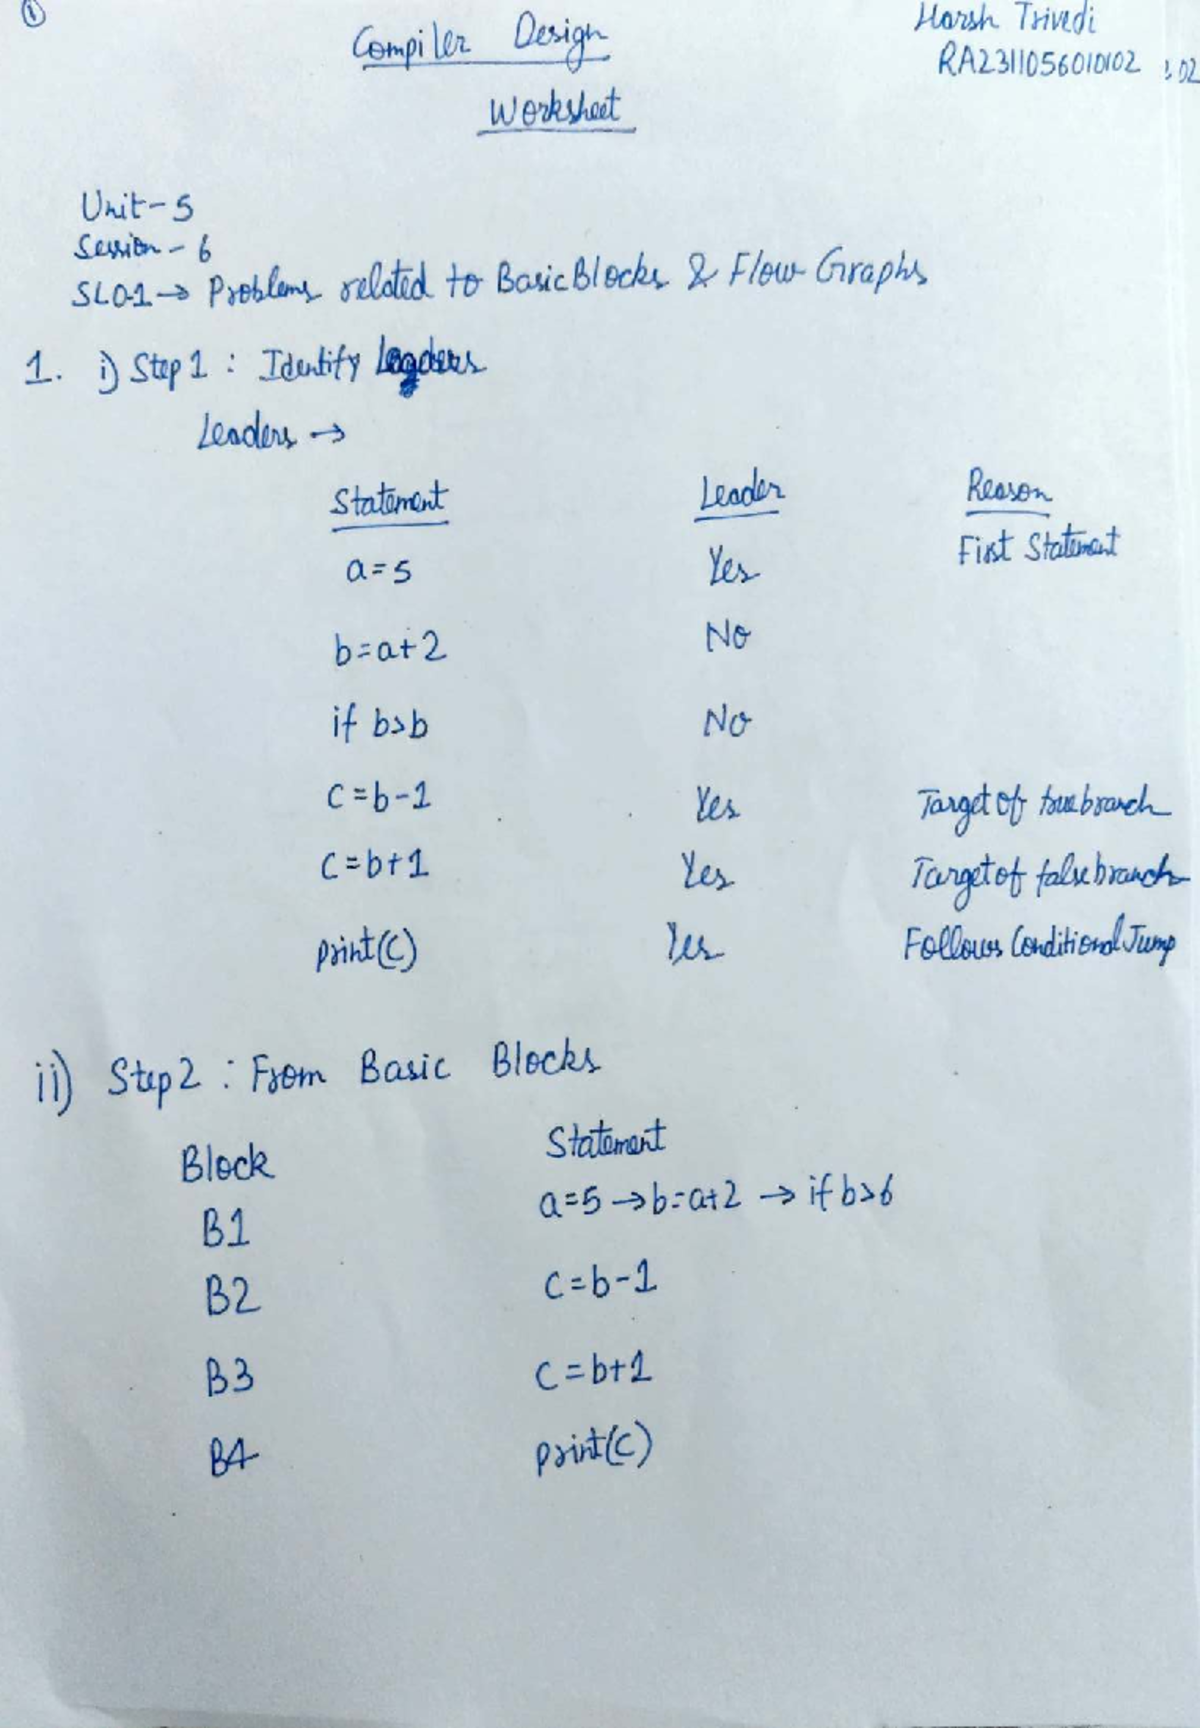 ①
Compiler Design
Harsh Trivedi
RA2311056010102
Worksheet
Unit-5
Session-6
SLO-1 → Problems related to Basic Blocks & Flow Graphs
1. i) Step 1 : Identify Leaders
Leaders →
Statement Leader Reason
a=5 Yes First Statement
b=a+2 No
if b>b No
C=b-1 Yes Target of true branch
C=b+1 Yes Target of false branch
print(C) Yes Follows Conditional Jump
ii) Step 2 : From Basic Blocks
Block Statement
B1 a=5 → b=a+2 → if b>6
B2 C=b-1
B3 C=b+1
B4 print(C)